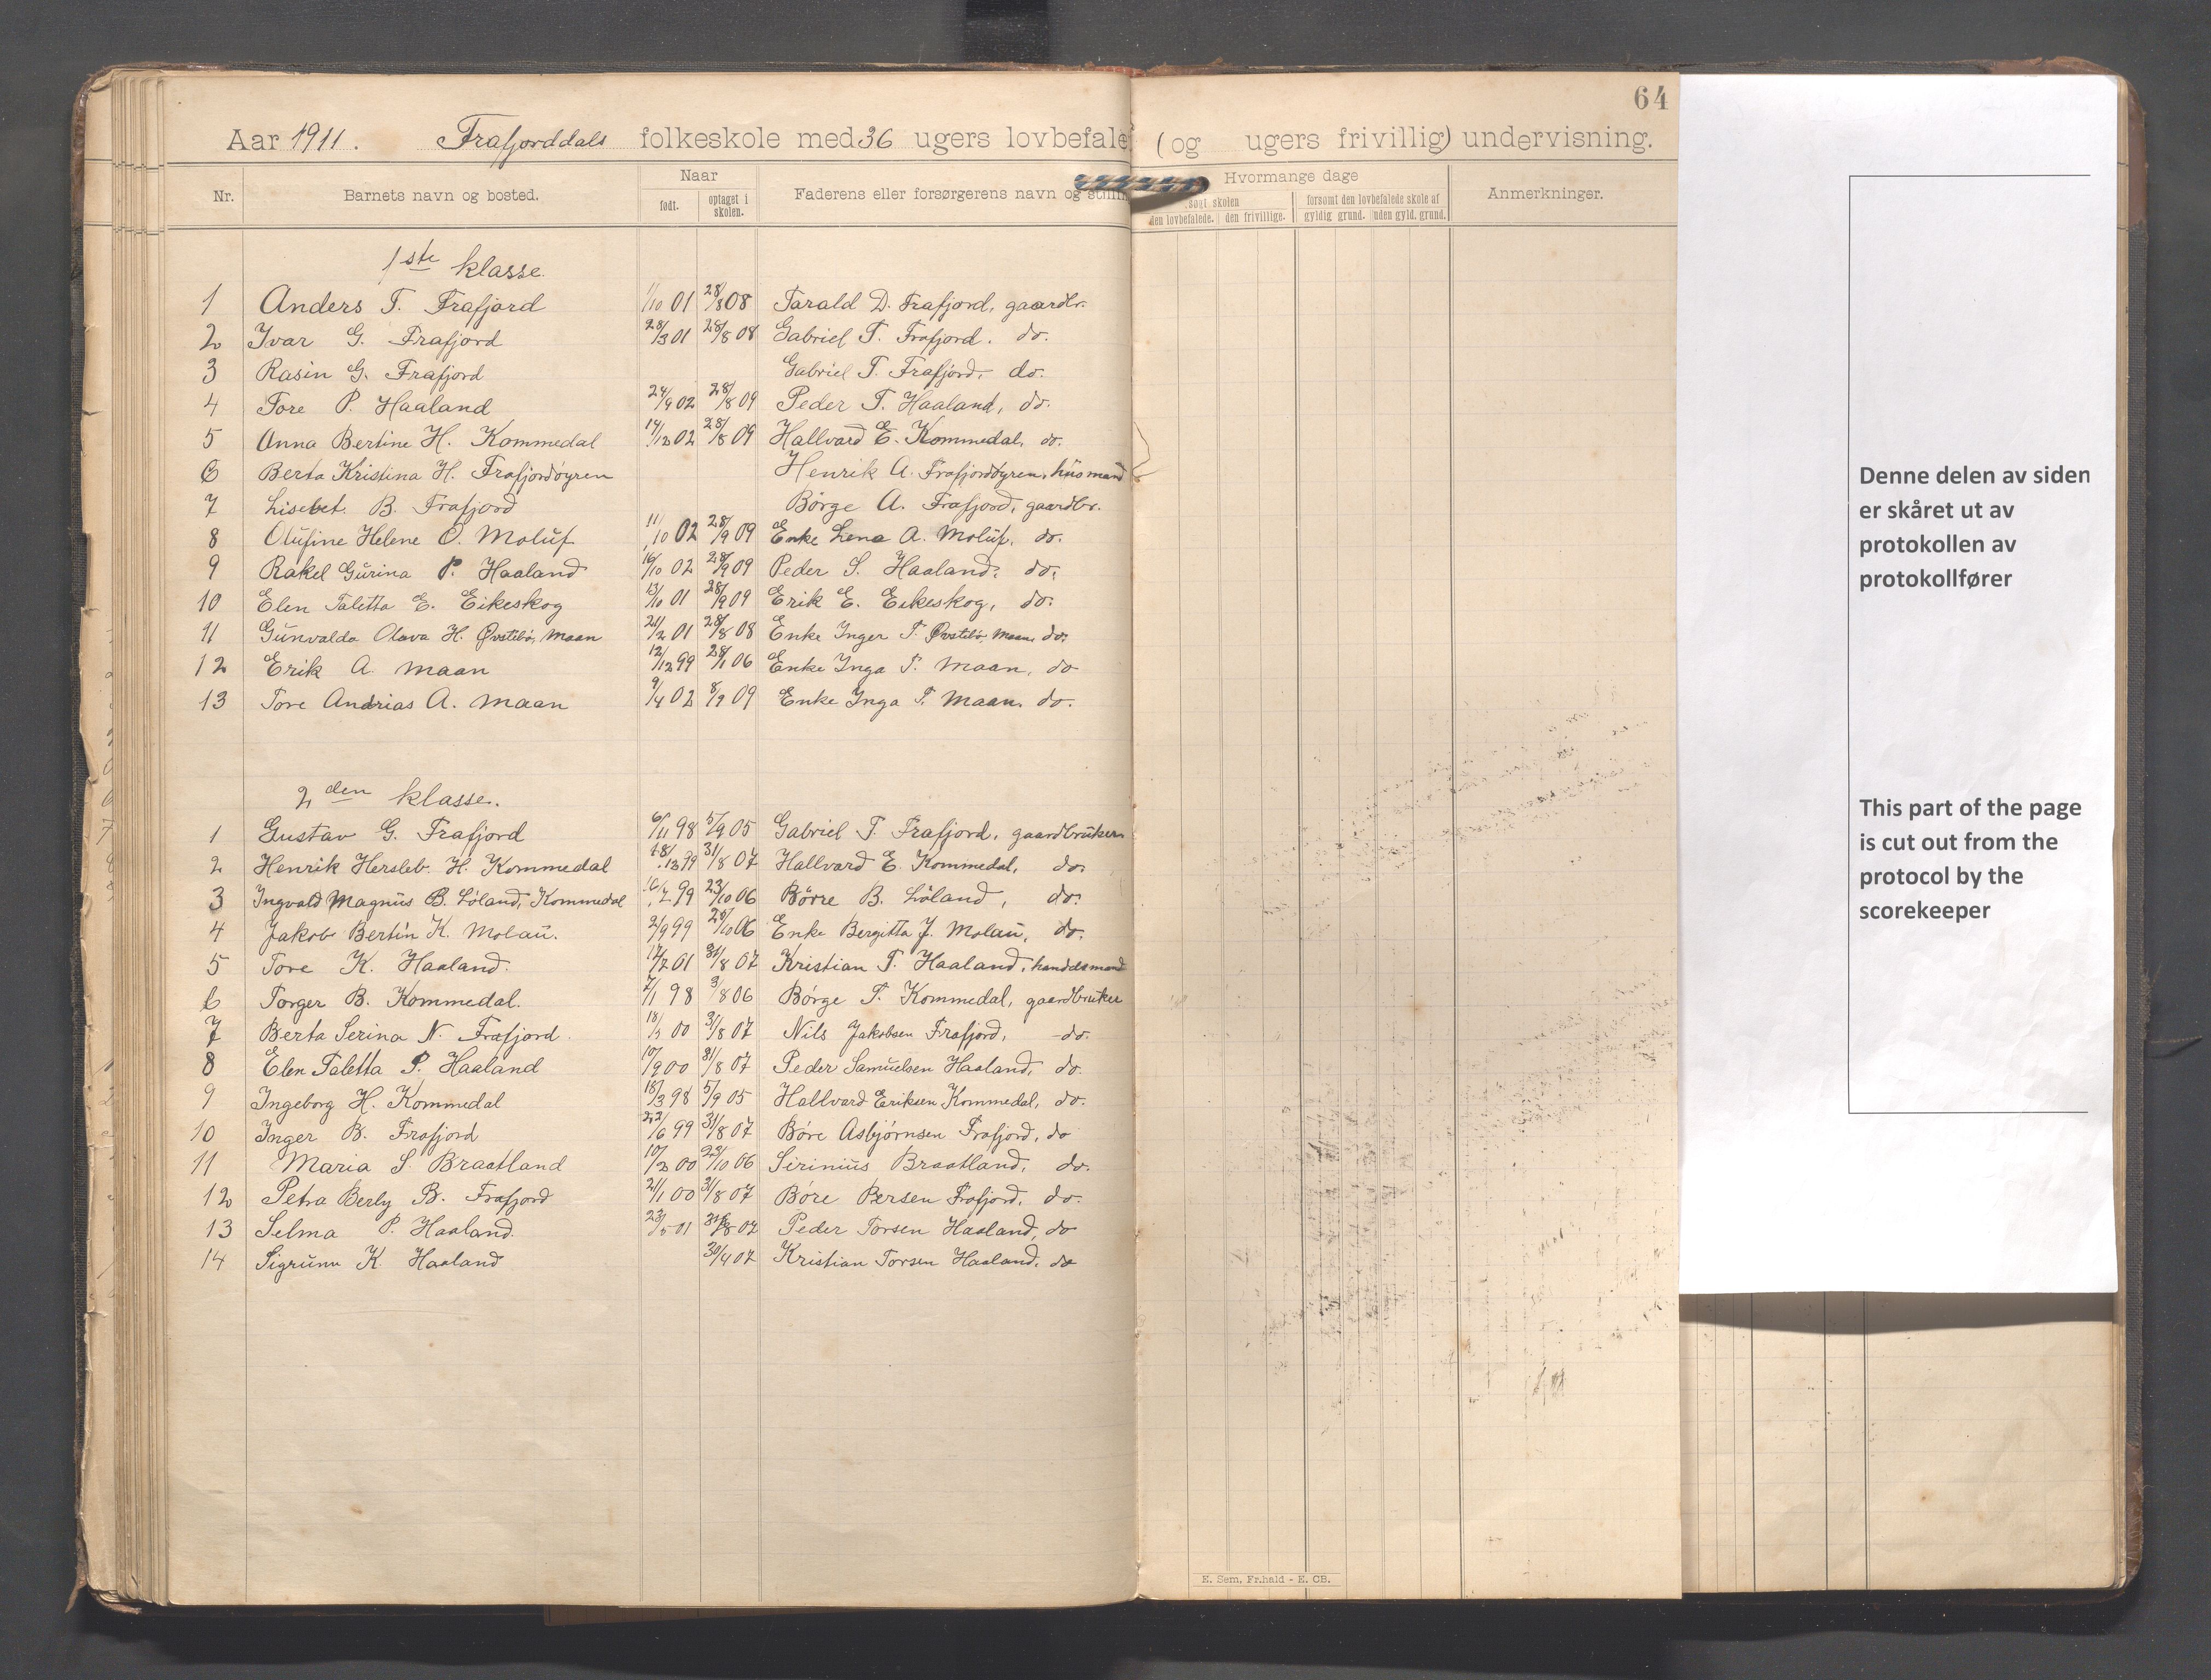 64
Aar 1911. Frafjorddals folkeskole med 36 ugers lovbefale (og ugers frivillig) undervisning.
Nr. Barnets navn og bosted. Naar født. optaget i skolen. Faderens eller forsørgerens navn og stillin Hvormange dage søgt skolen den lovbefalede. den frivillige. forsømt den lovbefalede skole af gyldig grund. uden gyld. grund. Anmerkninger.
1ste klasse.
1 Anders T. Frafjord 11/10 01 28/8 08 Tarald D. Frafjord, gaardbr.
2 Ivar G. Frafjord 28/3 01 28/8 08 Gabriel T. Frafjord. do.
3 Rasin G. Frafjord Gabriel T. Frafjord, do.
4 Tore P. Haaland 24/9 02 28/8 09 Peder T. Haaland, do.
5 Anna Bertine H. Kommedal 14/12 02 28/8 09 Hallvard E. Kommedal, do.
6 Berta Kristina H. Frafjordöyren Henrik A. Frafjordöyren, husmand
7 Lisebet B. Frafjord Börge A. Frafjord, gaardbr.
8 Olufine Helene O. Moluf 11/10 02 28/9 09 Enke Lena A. Moluf, do.
9 Rakel Gurina P. Haaland 16/10 02 28/9 09 Peder S. Haaland, do.
10 Elen Taletta E. Eikeskog 13/10 01 28/9 09 Erik E. Eikeskog, do.
11 Gunvalda Olava H. Øvstebö, Maan 21/2 01 28/8 08 Enke Inger T. Øvstebö, Maan, do.
12 Erik A. Maan 12/12 99 28/1 06 Enke Inga T. Maan, do
13 Tore Andrias A. Maan 9/4 02 8/9 09 Enke Inga T. Maan, do.
2den klasse.
1 Gustav G. Frafjord 6/11 98 5/9 05 Gabriel T. Frafjord, gaardbruker
2 Henrik Hersleb. H. Kommedal 18/12 99 31/8 07 Hallvard E. Kommedal, do.
3 Ingvald Magnus B. Löland, Kommedal 16/7 99 23/10 06 Börre B. Löland, do.
4 Jakob Bertin K. Molau. 2/9 99 /10 06 Enke Bergitta J. Molau, do.
5 Tore K. Haaland. 12/7 01 31/8 07 Kristian T. Haaland, handelsmand
6 Torger B. Kommedal. 7/1 98 3/8 06 Börge T. Kommedal, gaardbruker
7 Berta Serina N. Frafjord. 18/5 00 31/8 07 Nils Jakobsen Frafjord, do.
8 Elen Taletta P. Haaland 10/9 00 31/8 07 Peder Samuelsen Haaland, do.
9 Ingeborg H. Kommedal 18/3 98 5/9 05 Hallvard Eriksen Kommedal, do.
10 Inger B. Frafjord 22/6 99 31/8 07 Böre Asbjörnsen Frafjord, do
11 Maria S. Braatland 10/3 00 23/10 06 Sirinius Braatland, do.
12 Petra Berly B. Frafjord 21/1 00 31/8 07 Böre Bersen Frafjord, do.
13 Selma P. Haaland. 23/5 01 31/8 07 Peder Torsen Haaland, do
14 Sigrunn K. Haaland 30/4 07 Kristian Torsen Haaland, do
E. Sem, Fr.hald - E. CB.
Denne delen av siden
er skåret ut av
protokollen av
protokollfører
This part of the page
is cut out from the
protocol by the
scorekeeper